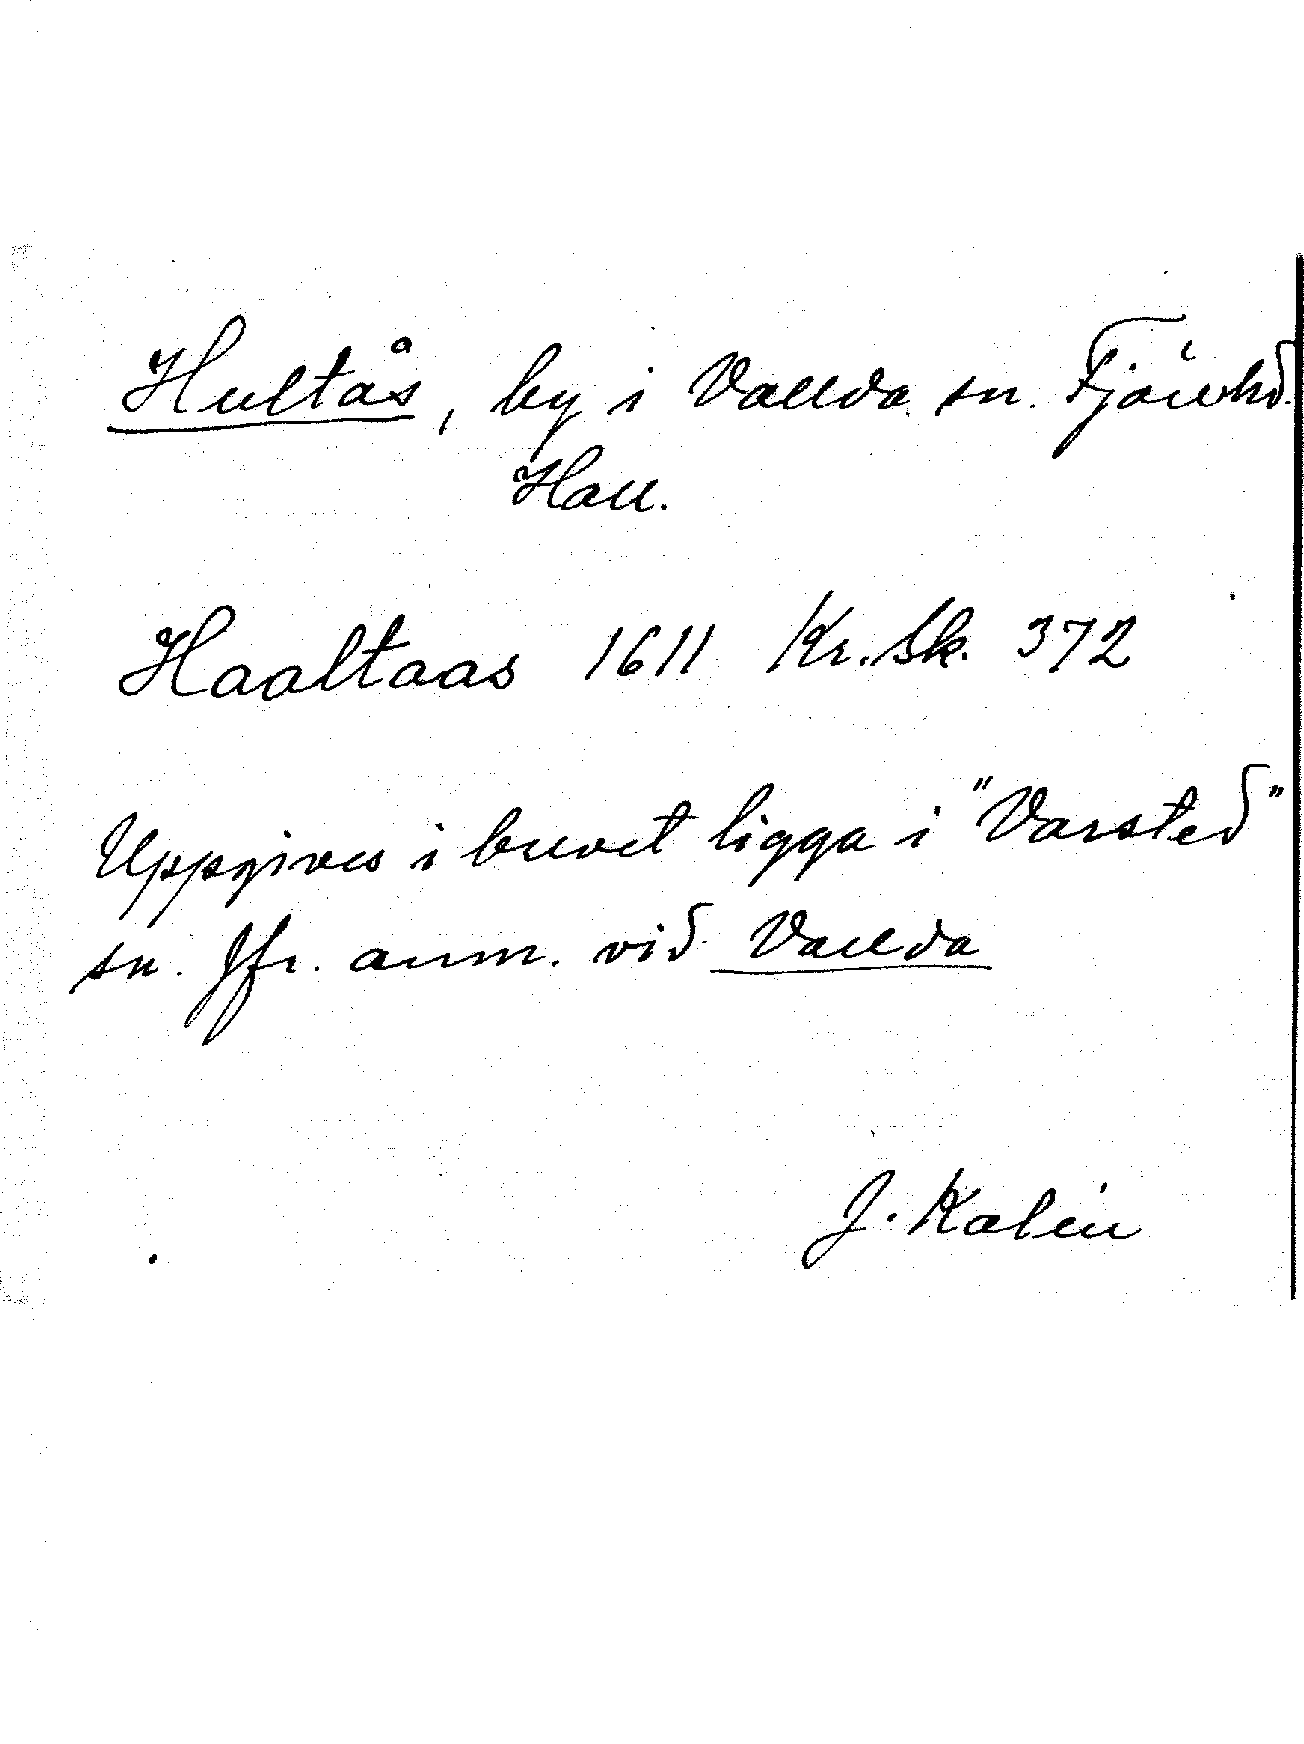 Hultås, by i Vallda sn. Fjäre hd.
Hall.
Haaltaas 1611 Kr. Sk. 372
Uppgives i brevet ligga i "Varsted"
sn. Jfr. anm. vid Vallda
J. Kalén